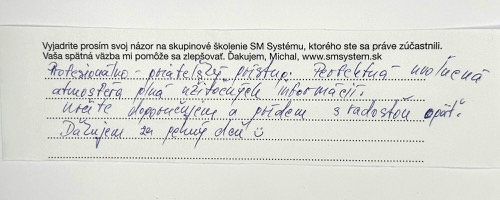 Vyjadrite prosím svoj názor na skupinové školenie SM Systému, ktorého ste sa práve zúčastnili.
Vaša spätná väzba mi pomôže sa zlepšovať. Ďakujem, Michal, www.smsystem.sk
Profesionálno - priateľský prístup. Perfektná uvoľnená
atmosféra plná užitočných informácií.
Určite doporučujem a prídem s radosťou opäť.
Ďakujem za pekný deň ☺